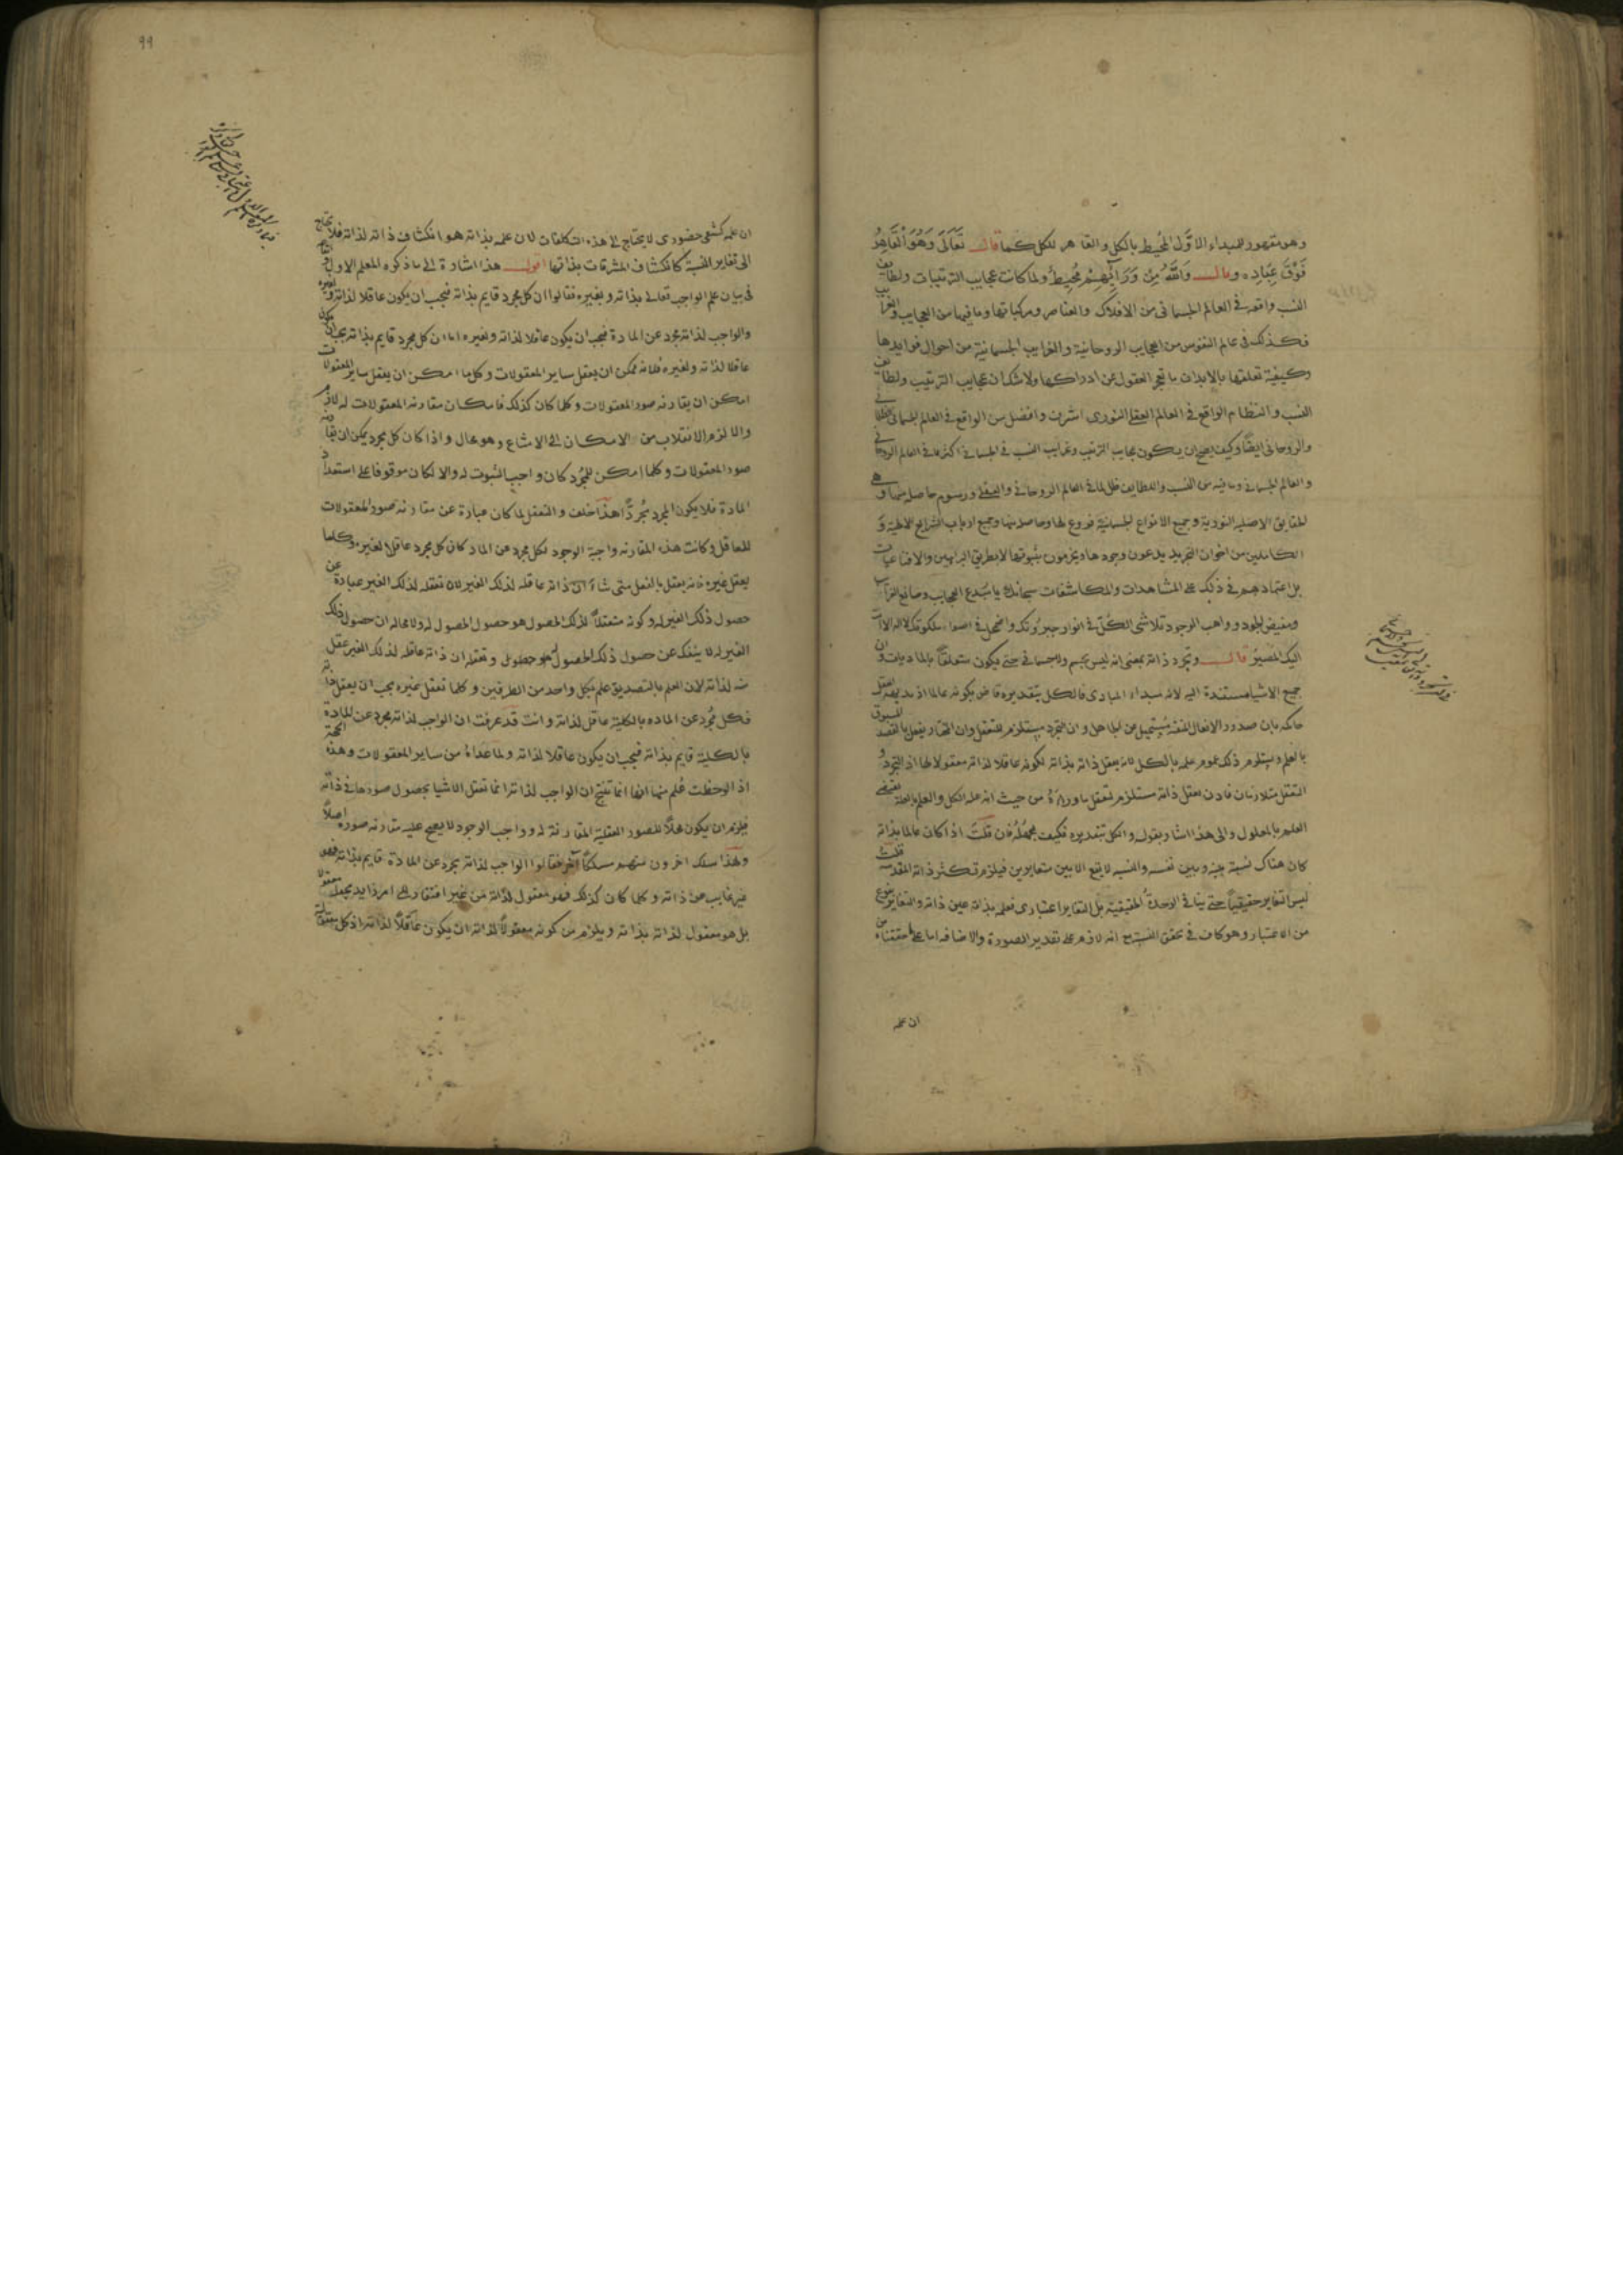 وهو مقهور للمبداء الاوّل المحُيط بالكل والقاهر للكل كما قال تَعَالَى وَهُوَ اْلقَاهِرُ
فَوْقَ عِبَادِه وقال وَاللَّهُ مِنْ وَرَائِهِمْ مُحِيطٌ ولما كانت عجايب الترتيبات ولطايف
النسب واقعه فى العالم الجسمانى من الافلاك والعناصر ومركباتها وما فيها من العجايب والغرايب
فكذلك فى عالم النفوس من العجايب الروحانية والغرايب الجسمانية من احوال قوايدها
وكيفية تعلقها بالابدان ما تحير العقول عن ادراكها ولا شك ان عجايب الترتيب ولطايف
النسب والنظام الواقع فى العالم العقلى النورى اشرف وافضل من الواقع فى العالم الجسمانى الظلمانى
والروحانى ايضًا وكيف يصح ان يكون عجايب الترتيب وغرايب النسب فى الجسمانى اكثر مما فى العالم الروحانى
والعالم الجسمانى وما فيه من النسب واللطايف ظل لما فى العالم الروحانى والعقلى ورسوم حاصله منها وهى
الحقايق الاصليه النورية وجميع الانواع الجسمانية فروع لها وحاصله منها وجميع ارباب الشرايع الالهية و
الكاملين من اخوان التجريد يدعون وجودها ويجزمون بثبوتها لا بطريق البراهين والاقناعيات
بل اعتمادهم فى ذلك على المشاهدات والمكاشفات سبحانك يا مبدع العجايب وصانع الغرايب
ومفيض الجود وواهب الوجود تلاشى الكل فى انوار جبروتك واضمحل فى اضواء ملكوتك لا اله الا انت
اليك المصير قال وتجرد ذاته بمعنى انه ليس بجسم ولا جسمانى حتى يكون متعلقًا بالماديات وان
جميع الاشيا مستندة اليه لانه مبداء المبادى فالكل بتقديره قاض بكونه عالما اذ بديهة العقل
حاكمه بان صدور الافعال المتقنة يستحيل عن الجاهل وان التجرد مستلزم للتعقل وان المختار يفعل بالقصد المسبوق
بالعلم ويستلزم ذلك عموم علمه بالكل لانه يعقل ذاته بذاته لكونه عاقلا لذاته معقولا لها اذ التجرد و
التعقل متلازمان فاذن يعقل ذاته مستلزم لتعقل ماوراءه من حيث انه علة الكل والعلم بالعلة يقتضى
العلم بالمعلول والى هذا اشار بقوله والكل بتقديره فكيف يجهله فان قلت اذا كان عالما بذاته
كان هناك نسبة بينه وبين نفسه والنسبه لا يقع الا بين متغايرين فيلزم تكثر ذاته المقدسة قلت
ليس التغاير حقيقيًا حتى ينافى الوحدة الحقيقية بل التغاير اعتبارى فعلمه بذاته عين ذاته والتغاير بنوع
من الاعتبار وهو كاف فى تحقق النسبة مع انه لازم على تقدير الصورة والاضافه اما على ما حققناه من
ان علمه
٩٩
ان علمه كشفى حضورى لا يحتاج الى هذه التكلفات لان علمه بذاته هو انكشاف ذاته لذاته فلا يحتاج
الى تغاير النسبة كانكشاف المشرقات بذاتها اقول هذا اشارة الى ما ذكره المعلم الاول
فى بيان علم الواجب تعالى بذاته وبغيره فقالوا ان كل مجرد قايم بذاته فيجب ان يكون عاقلا لذاته ولغيره
والواجب لذاته مجرد عن المادة فيجب ان يكون عاقلا لذاته ولغيره اما ان كل مجرد قايم بذاته يجب ان يكون
عاقلا لذاته ولغيره فلانه ممكن ان يعقل ساير المعقولات وكل ما امكن ان يعقل ساير المعقولات
امكن ان يقارنه صور المعقولات وكلما كان كذلك فامكان مقارنه المعقولات له لازم
والا لزم الانقلاب من الامكان الى الامتناع وهو محال واذا كان كل مجرد يمكن ان يقارنه
صور المعقولات وكلما امكن للمجرد كان واجب الثبوت له والا لكان موقوفا على استعداد
المادة فلا يكون المجرد مُجردًّا هذا خلف والتعقل لما كان عبارة عن مقارنه صور المعقولات
للعاقل وكانت هذه المقارنه واجبة الوجود لكل مجرد عن الماد كان كل مجرد عاقلا لغيره وكلما
يعقل غيره فانه يعقل بالفعل متى شاء ان ذاته عاقله لذلك الغير لان تعقله لذلك الغير عبارة عن
حصول ذلك الغير له وكونه متعقلًا لذلك الحصول هو حصول الحصول له ولا محاله ان حصول ذلك
الغير له لا ينفك عن حصول ذلك الحصول له هو حصول وتعقله ان ذاته عاقله لذلك الغير عقل
منه لذاته لان العلم بالتصديق علم بكل واحد من الطرفين وكلما تعقل غيره يجب ان يعقل ذاته
فكل مُجرد عن الماده بالكلية عاقل لذاته وانت قد عرفت ان الواجب لذاته مجرد عن المادة
بالكلية قايم بذاته فيجب ان يكون عاقلا لذاته ولما عداهُ من ساير المعقولات وهذه الحجة
اذا لوحظت عُلم منها انها انما تنتج ان الواجب لذاته انما تعقل الاشيا بحصول صورها فى ذاته
فيلزم ان يكون محلًا للصور العقلية المقارنة له وواجب الوجود لا يصح عليه مقارنه صوره اصلًا
ولهذا سلك اخرون منهم مسلكًا آخر فقالوا الواجب لذاته مجرد عن المادة قايم بذاته فهو
غير غايب عن ذاته وكلما كان كذلك فهو معقول لذاته من غير افتقار الى امر زايد يجعله معقولا
بل هو معقول لذاته بذاته ويلزم من كونه معقولًا لذاته ان يكون عاقلًا لذاته اذ كل